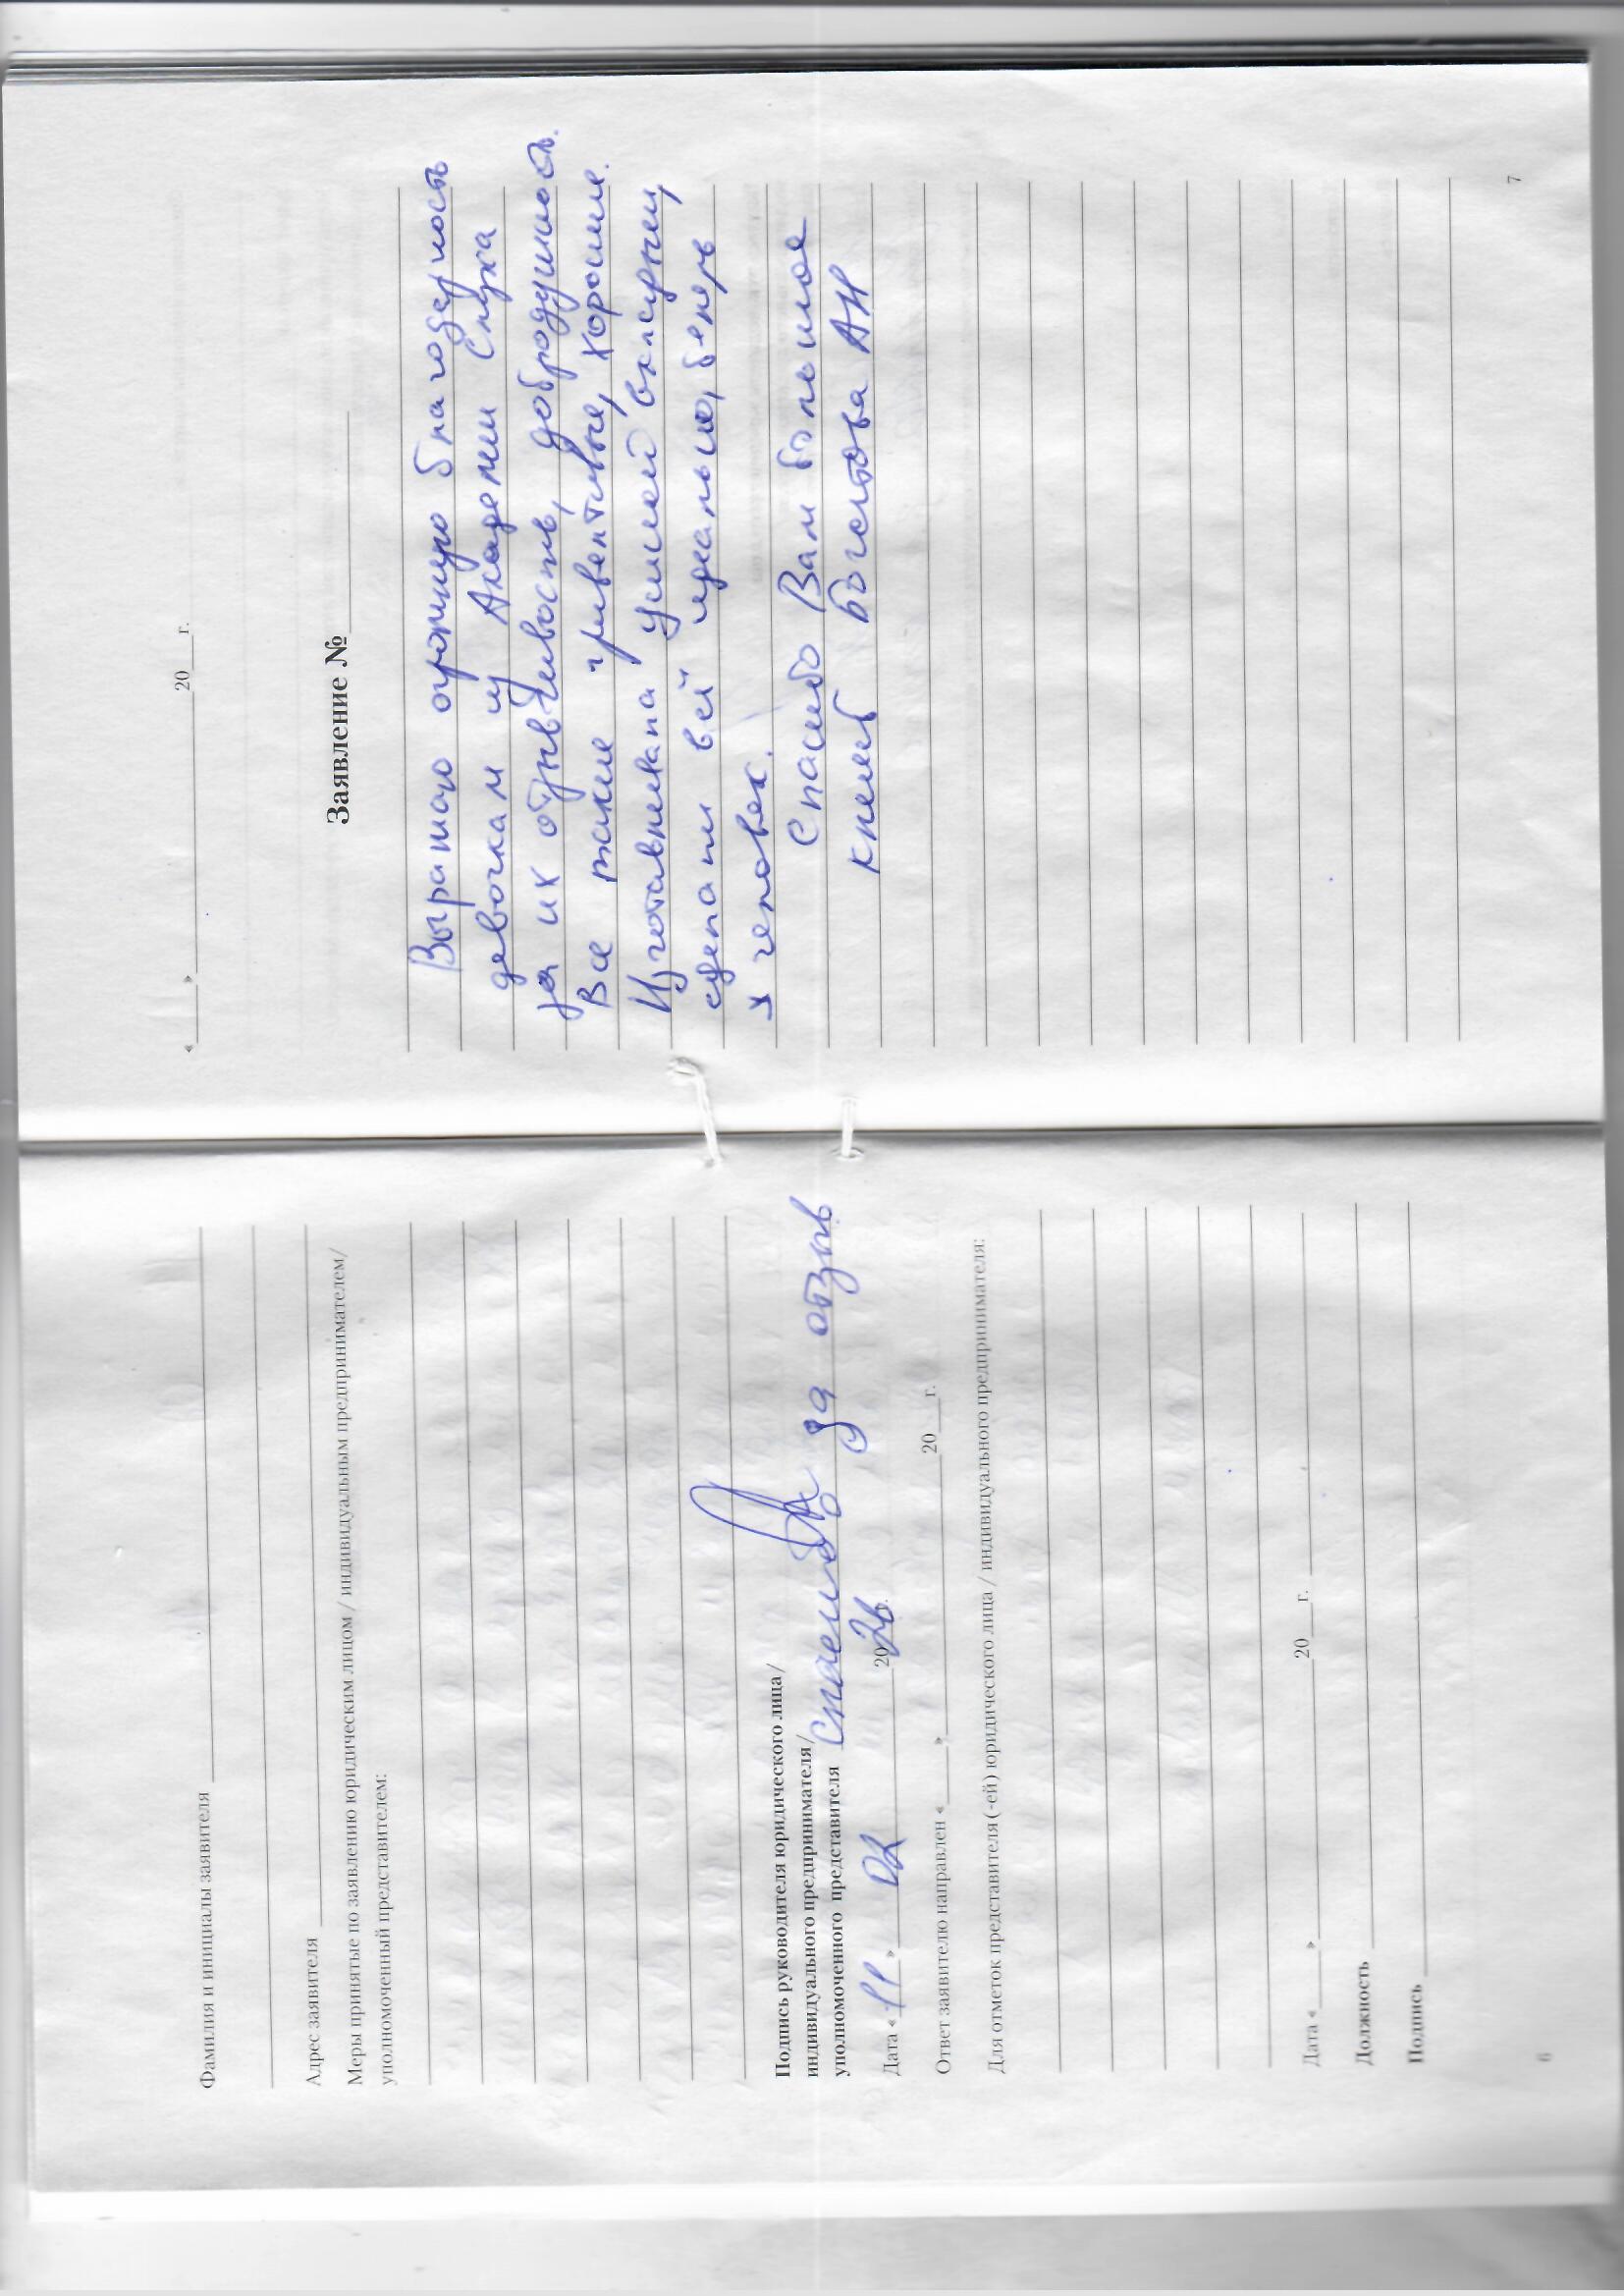 Фамилия и инициалы заявителя
Адрес заявителя
Меры принятые по заявлению юридическим лицом / индивидуальным предпринимателем/
уполномоченный представителем:
Подпись руководителя юридического лица/
индивидуального предпринимателя/
уполномоченного представителя Спасибо за отзыв
Дата « 11 » 02 2026.
Ответ заявителю направлен « » 20 г.
Для отметок представителя (-ей) юридического лица / индивидуального предпринимателя:
Дата « » 20 г.
Должность
Подпись
6
« » 20 г.
Заявление №
Выражаю огромную благодарность
девочкам из Академии Слуха
за их отзывчивость, добродушность.
Все такие приветливые, хорошие.
Изготавливала ушной вкладыш,
сделали всё идеально, теперь
я человек.
Спасибо Вам большое
клиент АН
7